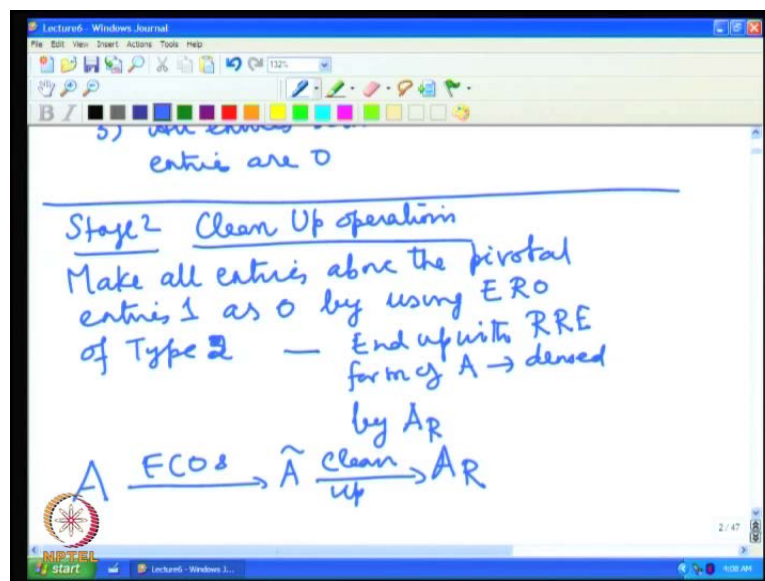 Lecture6 - Windows Journal
File Edit View Insert Actions Tools Help
132%
B I
entries are 0
Stage 2 Clean Up operations
Make all entries above the pivotal
entries 1 as 0 by using ERO
of Type 2 — End up with RRE
form of A → denoted
by A_R
A ECOs → Ã Clean up → A_R
2 / 47
NPTEL
start Lecture6 - Windows J... 4:08 AM